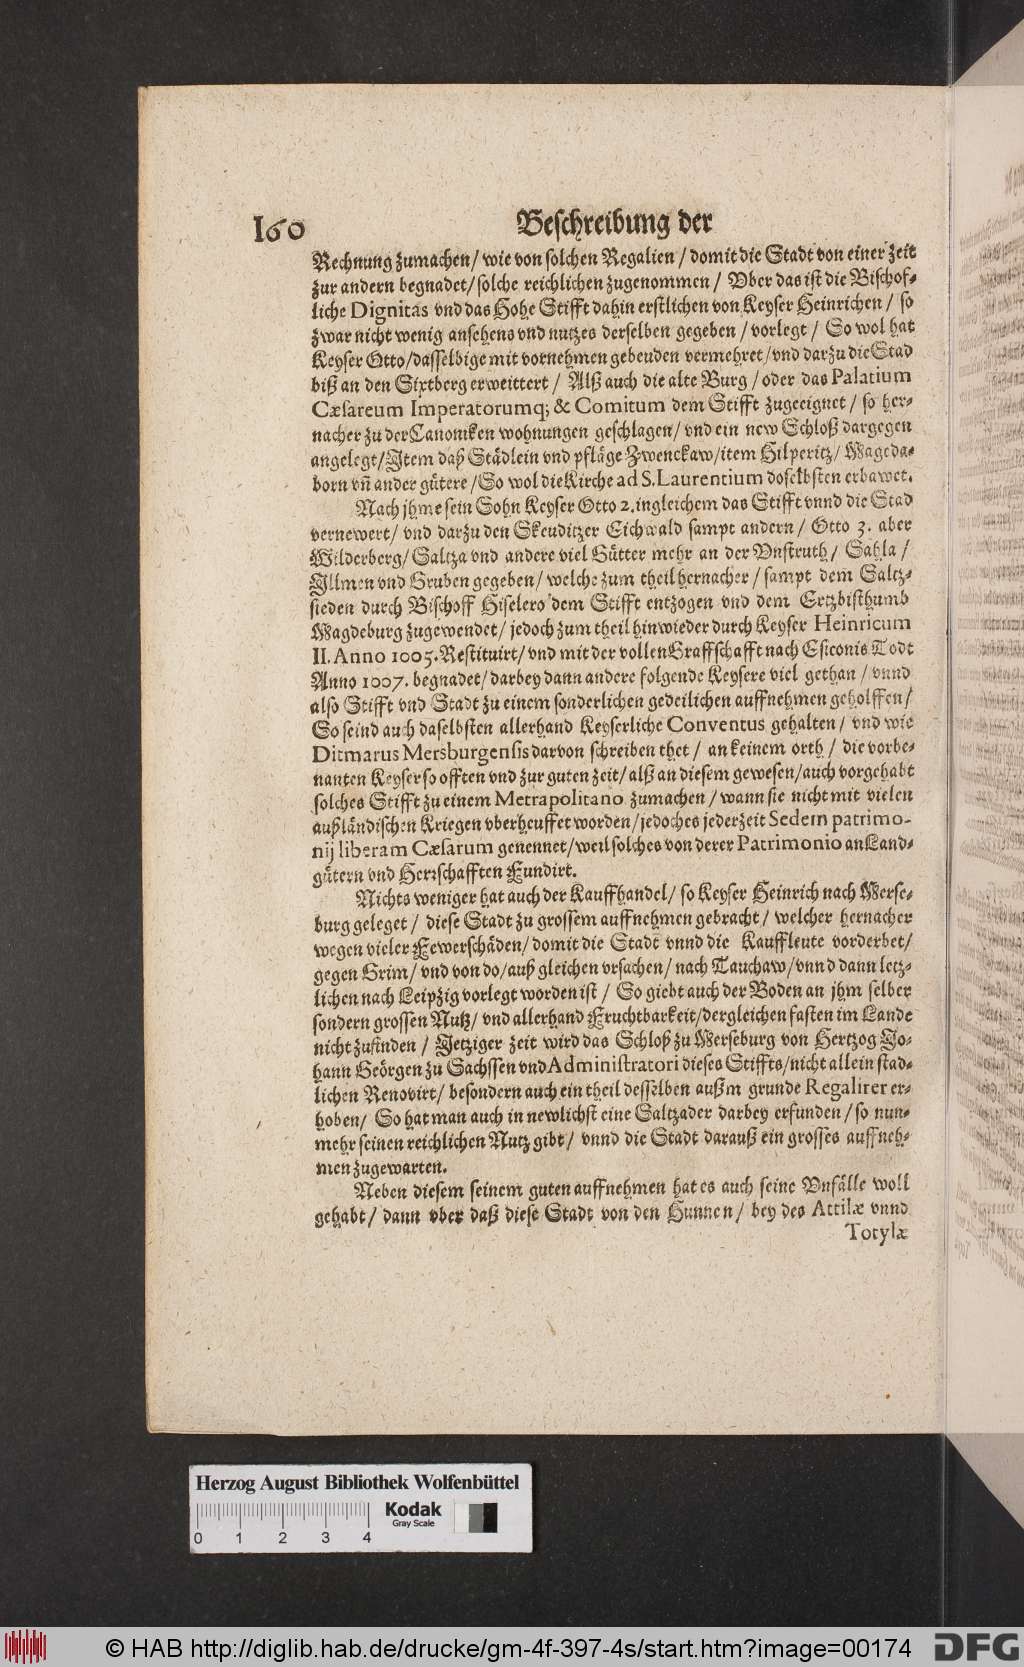 160 Beschreibung der
Rechnung zumachen / wie von solchen Regalien / domit die Stadt von einer zeit
zur andern begnadet / solche reichlichen zugenommen / Vber das ist die Bischof-
liche Dignitas vnd das Hohe Stifft dahin erstlichen von Keyser Heinrichen / so
zwar nicht wenig ansehens vnd nutzes derselben gegeben / vorlegt / So wol hat
Keyser Otto / dasselbige mit vornehmen gebeuden vermehret / vnd darzu die Stad
biß an den Sixtberg erweittert / Alß auch die alte Burg / oder das Palatium
Cæsareum Imperatorumq; & Comitum dem Stifft zugeeignet / so her-
nacher zu der Canoniken wohnungen geschlagen / vnd ein new Schloß dargegen
angelegt / Item daß Städlein vnd pfläge Zwenckaw / item Hilperitz / Mageda-
born vn̄ ander gütere / So wol die Kirche ad S. Laurentium doselbsten erbawet.
Nach jhme sein Sohn Keyser Otto 2. ingleichem das Stifft vnnd die Stad
vernewert / vnd darzu den Skeuditzer Eichwald sampt andern / Otto 3. aber
Wilderberg / Saltza vnd andere viel Gütter mehr an der Vnstruth / Sahla /
Illmen vnd Gruben gegeben / welche zum theil hernacher / sampt dem Saltz-
sieden durch Bischoff Giselero dem Stifft entzogen vnd dem Ertzbisthumb
Magdeburg zugewendet / jedoch zum theil hinwieder durch Keyser Heinricum
II. Anno 1005. Restituirt / vnd mit der vollen Graffschafft nach Esiconis Todt
Anno 1007. begnadet / darbey dann andere folgende Keysere viel gethan / vnnd
also Stifft vnd Stadt zu einem sonderlichen gedeilichen auffnehmen geholffen /
So seind auch daselbsten allerhand Keyserliche Conventus gehalten / vnd wie
Ditmarus Mersburgensis darvon schreiben thet / an keinem orth / die vorbe-
nanten Keyser so offten vnd zur guten zeit / alß an diesem gewesen / auch vorgehabt
solches Stifft zu einem Metrapolitano zumachen / wann sie nicht mit vielen
außländischen Kriegen vberheuffet worden / jedoches jederzeit Sedem patrimo-
nij liberam Cæsarum genennet / weil solches von derer Patrimonio an Land-
gütern vnd Herrschafften Fundirt.
Nichts weniger hat auch der Kauffhandel / so Keyser Heinrich nach Merse-
burg geleget / diese Stadt zu grossem auffnehmen gebracht / welcher hernacher
wegen vieler Fewerschäden / domit die Stadt vnnd die Kauffleute vorderbet /
gegen Grim / vnd von do / auß gleichen vrsachen / nach Tauchaw / vnnd dann letz-
lichen nach Leipzig vorlegt worden ist / So giebt auch der Boden an jhm selber
sondern grossen Nutz / vnd allerhand Fruchtbarkeit / dergleichen fasten im Lande
nicht zufinden / Jetziger zeit wird das Schloß zu Merseburg von Hertzog Jo-
hann Geörgen zu Sachssen vnd Administratori dieses Stiffts / nicht allein stad-
lichen Renovirt / besondern auch ein theil desselben außm grunde Regalirer er-
hoben / So hat man auch in newlichst eine Saltzader darbey erfunden / so nun-
mehr seinen reichlichen Nutz gibt / vnnd die Stadt darauß ein grosses auffneh-
men zugewarten.
Neben diesem seinem guten auffnehmen hat es auch seine Vnfälle woll
gehabt / dann vber daß diese Stadt von den Hunnen / bey des Attilæ vnnd
Totylæ
Herzog August Bibliothek Wolfenbüttel
Kodak
Gray Scale
0 1 2 3 4
© HAB http://diglib.hab.de/drucke/gm-4f-397-4s/start.htm?image=00174
DFG